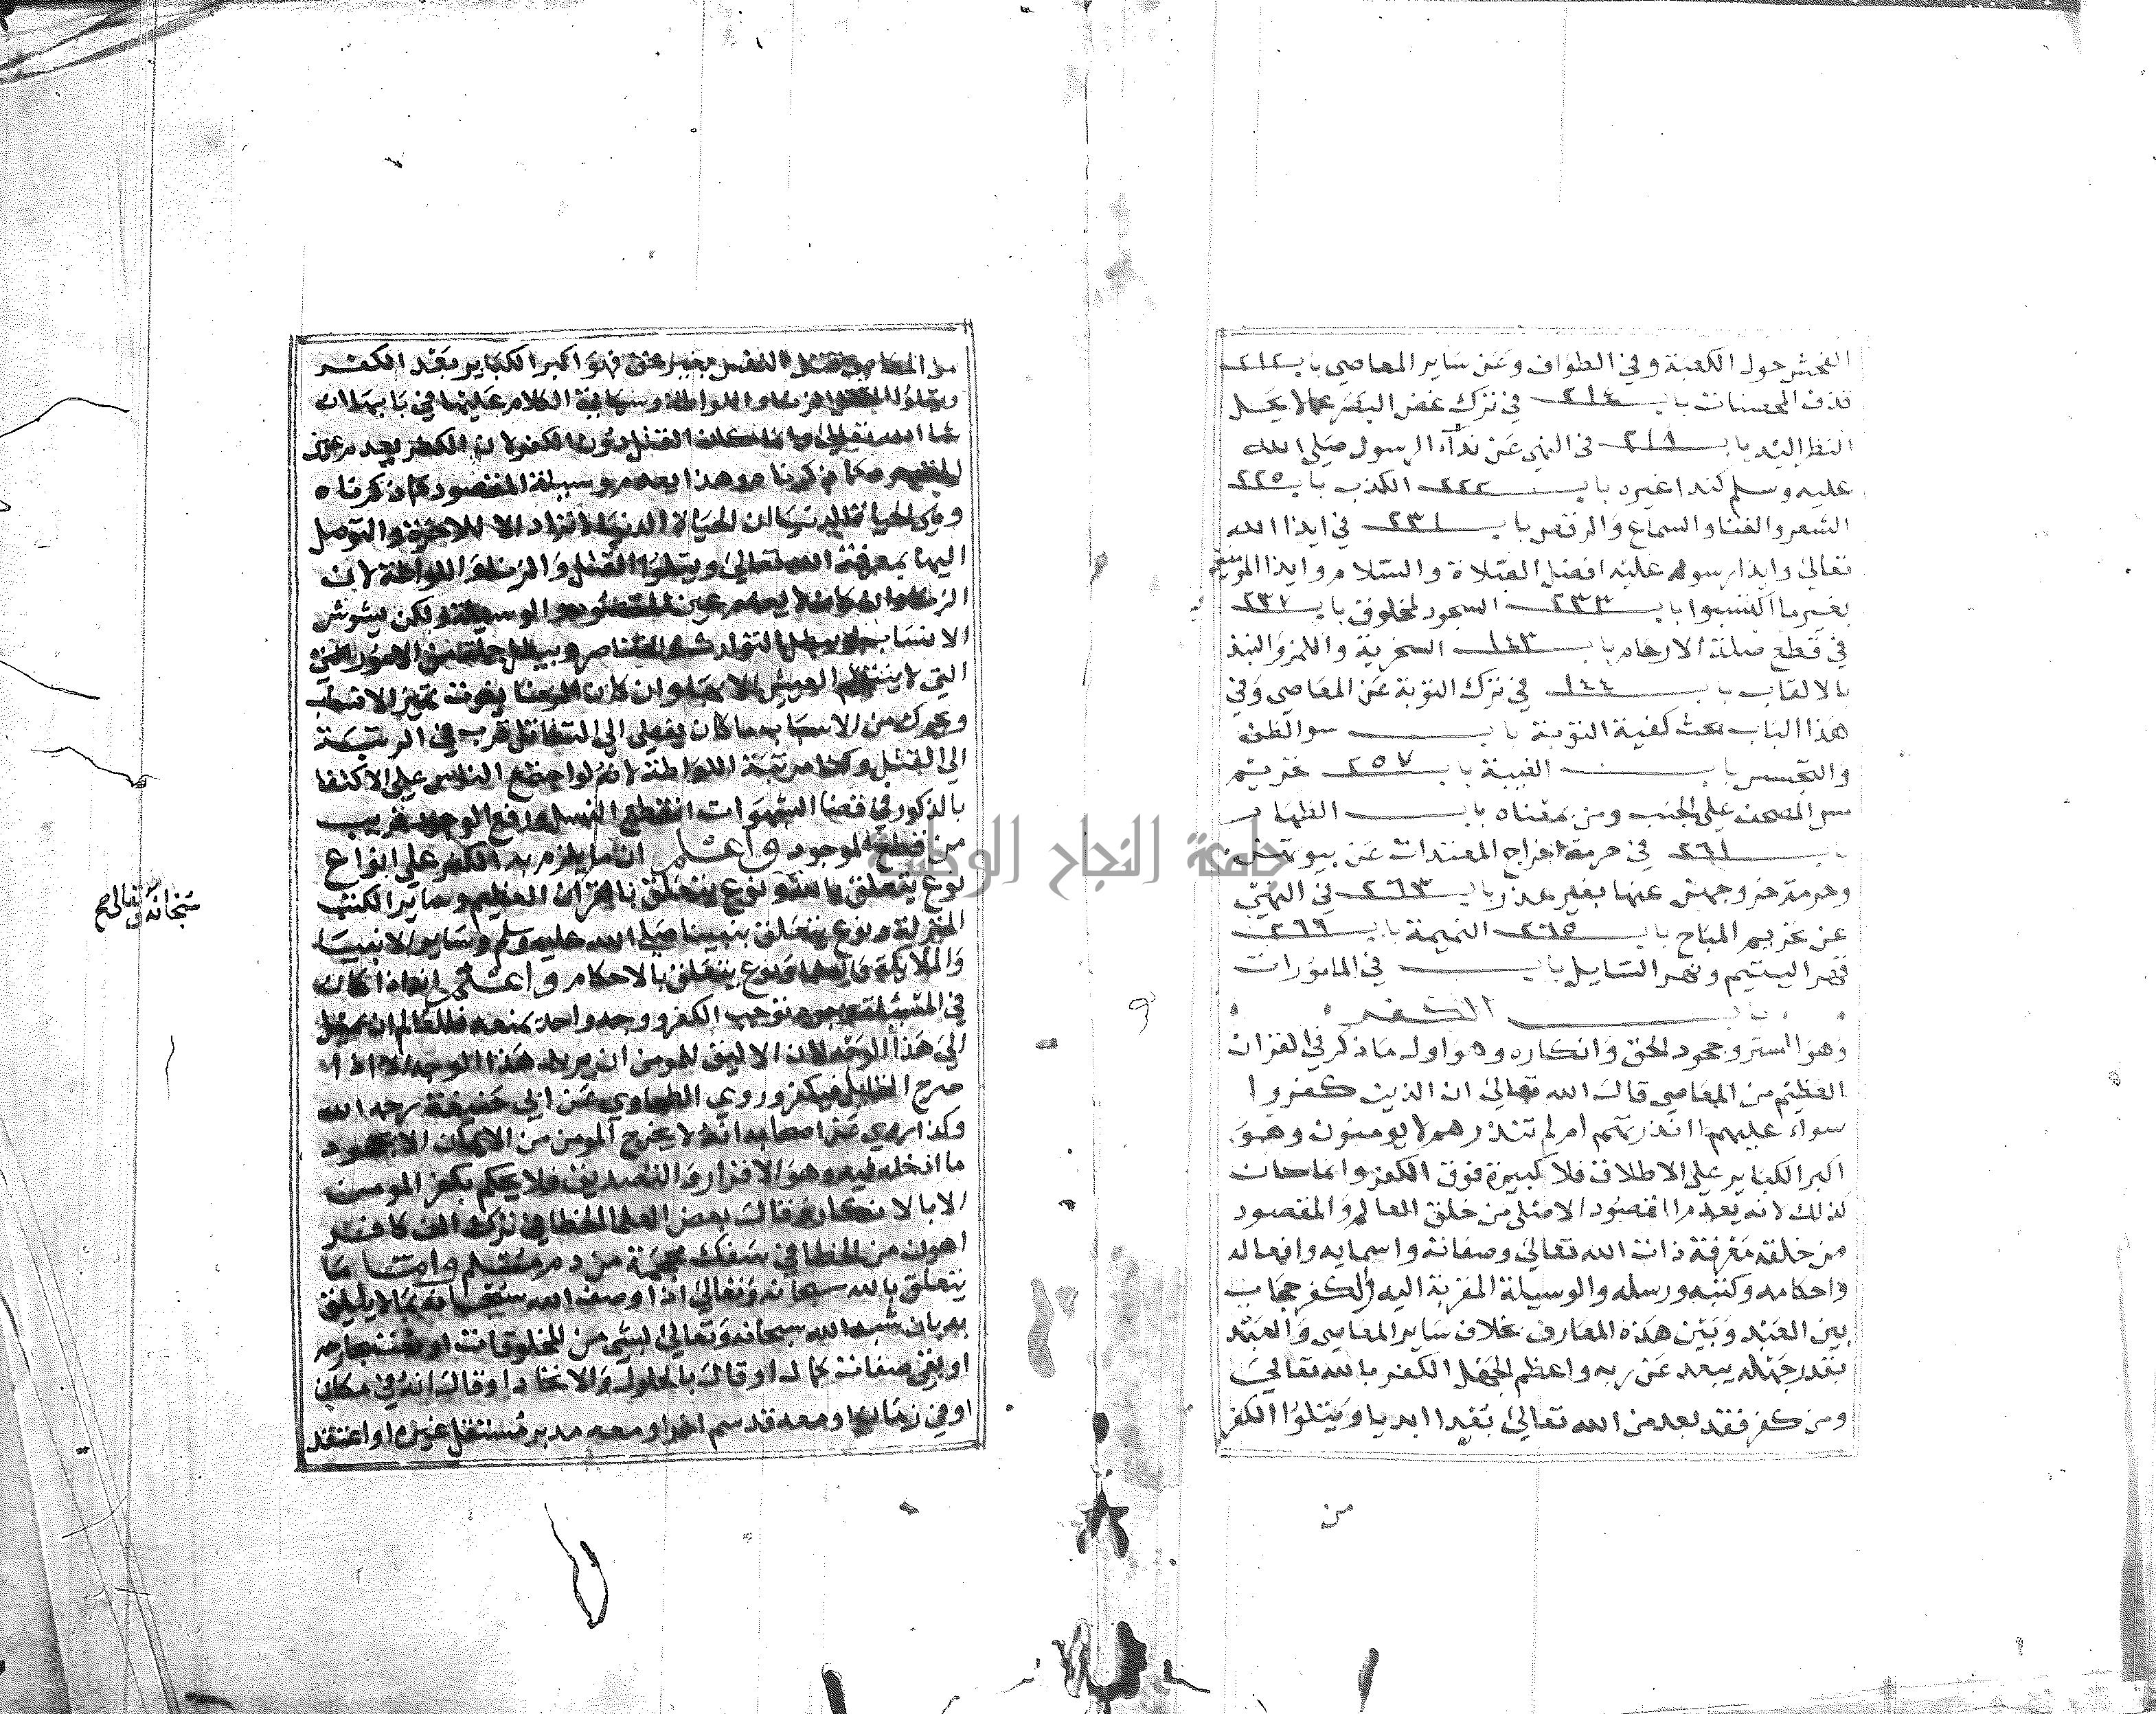 الفحش حول الكعبة وفي الطواف وعن ساير المعاصي باب ٢١٢
قذف المحصنات باب ٢١٤ في ترك غض البصر عما لا يحل
النظر اليه باب ٢١٨ في النهي عن نداء الرسول صلى الله
عليه وسلم كنداء غيره باب ٢٢٢ الكذب باب ٢٢٥
الشعر والغنا والسماع والرقص باب ٢٣١ في ايذا الله
تعالى وايذا رسوله عليه افضل الصلاة والسلام وايذا المومنين
بغير ما اكتسبوا باب ٢٣٣ السجود لمخلوق باب ٢٣٧
في قطع صلة الارحام باب ١٤٣ السخرية واللمز والنبذ
بالالقاب باب ١٤٤ في ترك التوبة عن المعاصي وفي
هذا الباب بحث كيفية التوبة باب سو الظن
والتجسس باب الغيبة باب ٢٥٧ تحريم
مس المصحف على الجنب ومن بمعناه باب الظهار
باب ٢٦١ في حرمة اخراج المعتدات عن بيوتهن
وحرمة خروجهن عنها بغير عذر باب ٢٦٣ في النهي
عن تحريم المباح باب ٢٦٥ النميمة باب ٢٦٦
قهر اليتيم ونهر السايل باب في المامورات
باب الكفر
وهو الستر وجحود الحق وانكاره وهو اول ما ذكر في القران
العظيم من المعاصي قال الله تعالى ان الذين كفروا
سواء عليهم اانذرتهم ام لم تنذرهم لا يومنون وهو
اكبر الكباير على الاطلاق فلا كبيرة فوق الكفر وانما كان
كذلك لانه يعدم المقصود الاصلي من خلق العالم والمقصود
من خلقه معرفة ذات الله تعالى وصفاته واسمايه وافعاله
واحكامه وكتبه ورسله والوسيلة المقربة اليه والكفر حجاب
بين العبد وبين هذه المعارف بخلاف ساير المعاصي والعبد
بقدر جهله يبعد عن ربه واعظم الجهل الكفر بالله تعالى
ومن كفر فقد بعد من الله تعالى بعدا ابديا ويتلوا الكفر
من
من المعاصي قتل النفس بغير حق فهو اكبر الكباير بعد الكفر
ويتلو القتل الزنا واللواطة وسياتي الكلام عليها في بابها ان
شا الله تعالى وانما كان القتل دون الكفر لان الكفر يعدم عين
المقصود كما ذكرنا وهذا يعدم وسيلة المقصود كما ذكرناه
الحياة الدنيا لان الحياة الدنيا لا تراد الا للاخرة والتوصل
اليها بمعرفة الله تعالى ويتلوا القتل والزنا واللواطة لان
الزنا وان كان لا يعدم عين المقصود والوسيلة ولكن يشوش
الانساب ويبطل التوارث والتناصر ويبطل جملة من الامور
التي لا ينتظم العيش الا بها وان كان الزنا يفوت تميز الانساب
ويحرك من الاسباب ما كان يفضي الى التقاتل قرب في الرتبة
الى القتل وكذا مرتبة اللواطة لانه لو اجتمع الناس على الاكتفا
بالذكور في قضا الشهوات انقطع النسل ورفع الوجود قريب
من قطع الموجود واعلم ان ما يلزم به الكفر على انواع
نوع يتعلق بالله ونوع يتعلق بالقران العظيم وساير الكتب
المنزلة ونوع يتعلق بنبينا صلى الله عليه وسلم وساير الانبيا
والملايكة والعلما ونوع يتعلق بالاحكام واعلم انه اذا كان
في المسئلة وجوه توجب الكفر ووجه واحد يمنعه فللعالم ان يميل
الى هذا الوجه لان الاليق للمومن ان يريد هذا الوجه الا اذا
صرح القايل فيكفر وروي الطحاوي عن ابي حنيفة رحمه الله
وكذا روي عن اصحابه انه لا يخرج المومن من الايمان الا بجحود
ما ادخله فيه وهو الاقرار والتصديق فلا يحكم بكفر المومن
الا بالانكار وقال بعض العلما الخطا في ترك الف كافر
اهون من الخطا في سفك محجمة من دم مسلم واما ما
يتعلق بالله سبحانه وتعالى اذا وصف الله سبحانه بما لا يليق
به بان شبه الله سبحانه وتعالى بشي من المخلوقات او
او بنفي صفات كماله او قال بالحلول والاتحاد او قال انه في مكان
او في زمان او معه قديم اخر او معه مدبر مستقل غيره او اعتقد
سبحانه وتعالى صح
جامعة النجاح الوطنية